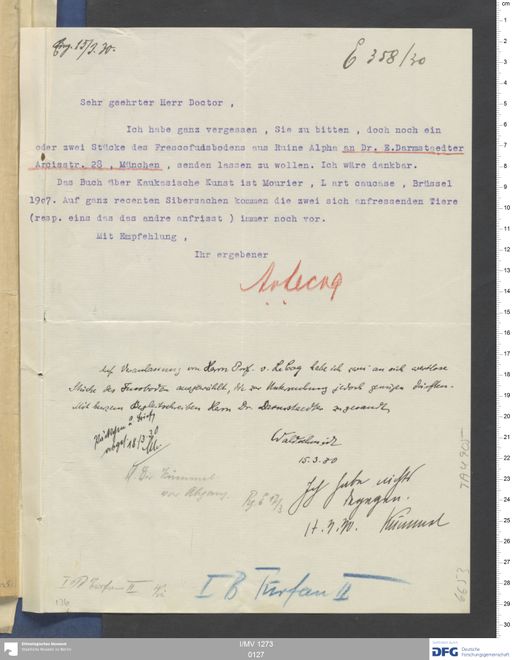 Eng. 15/3.30.
E 358/30
Sehr geehrter Herr Doctor ,
Ich habe ganz vergessen , Sie zu bitten , doch noch ein
oder zwei Stücke des Frescofudsbodens aus Ruine Alpha an Dr. E.Darmstaedter
Arcisstr. 28 , München , senden lassen zu wollen. Ich wäre dankbar.
Das Buch über Kaukasische Kunst ist Mourier , L art caucase , Brüssel
19o7. Auf ganz recenten Sibersachen kommen die zwei sich anfressenden Tiere
(resp. eins das des andre anfrisst ) immer noch vor.
Mit Empfehlung ,
Ihr ergebener
Auf Veranlassung von Herrn Prof. v. Lecoq habe ich zwei an sich wertlose
Stücke des Fussbodens ausgewählt, die zur Untersuchung jedoch genügen dürften.
Mit kurzem Begleitschreiben Herrn Dr. Darmstaedter zugesandt
Päckchen u. Brief
abges. 18/3 30
Waldschmidt
15.3.30
Dir Kümmel
vor Abgang.
Ich habe nichts
dagegen.
17.3.30. Kümmel
I B Turfan II
I B Turfan II
136
TA 4905
6653
Ethnologisches Museum
Staatliche Museen zu Berlin
I/MV 1273
0127
DFG Deutsche
Forschungsgemeinschaft
cm
1
2
3
4
5
6
7
8
9
10
11
12
13
14
15
16
17
18
19
20
21
22
23
24
25
26
27
28
29
30